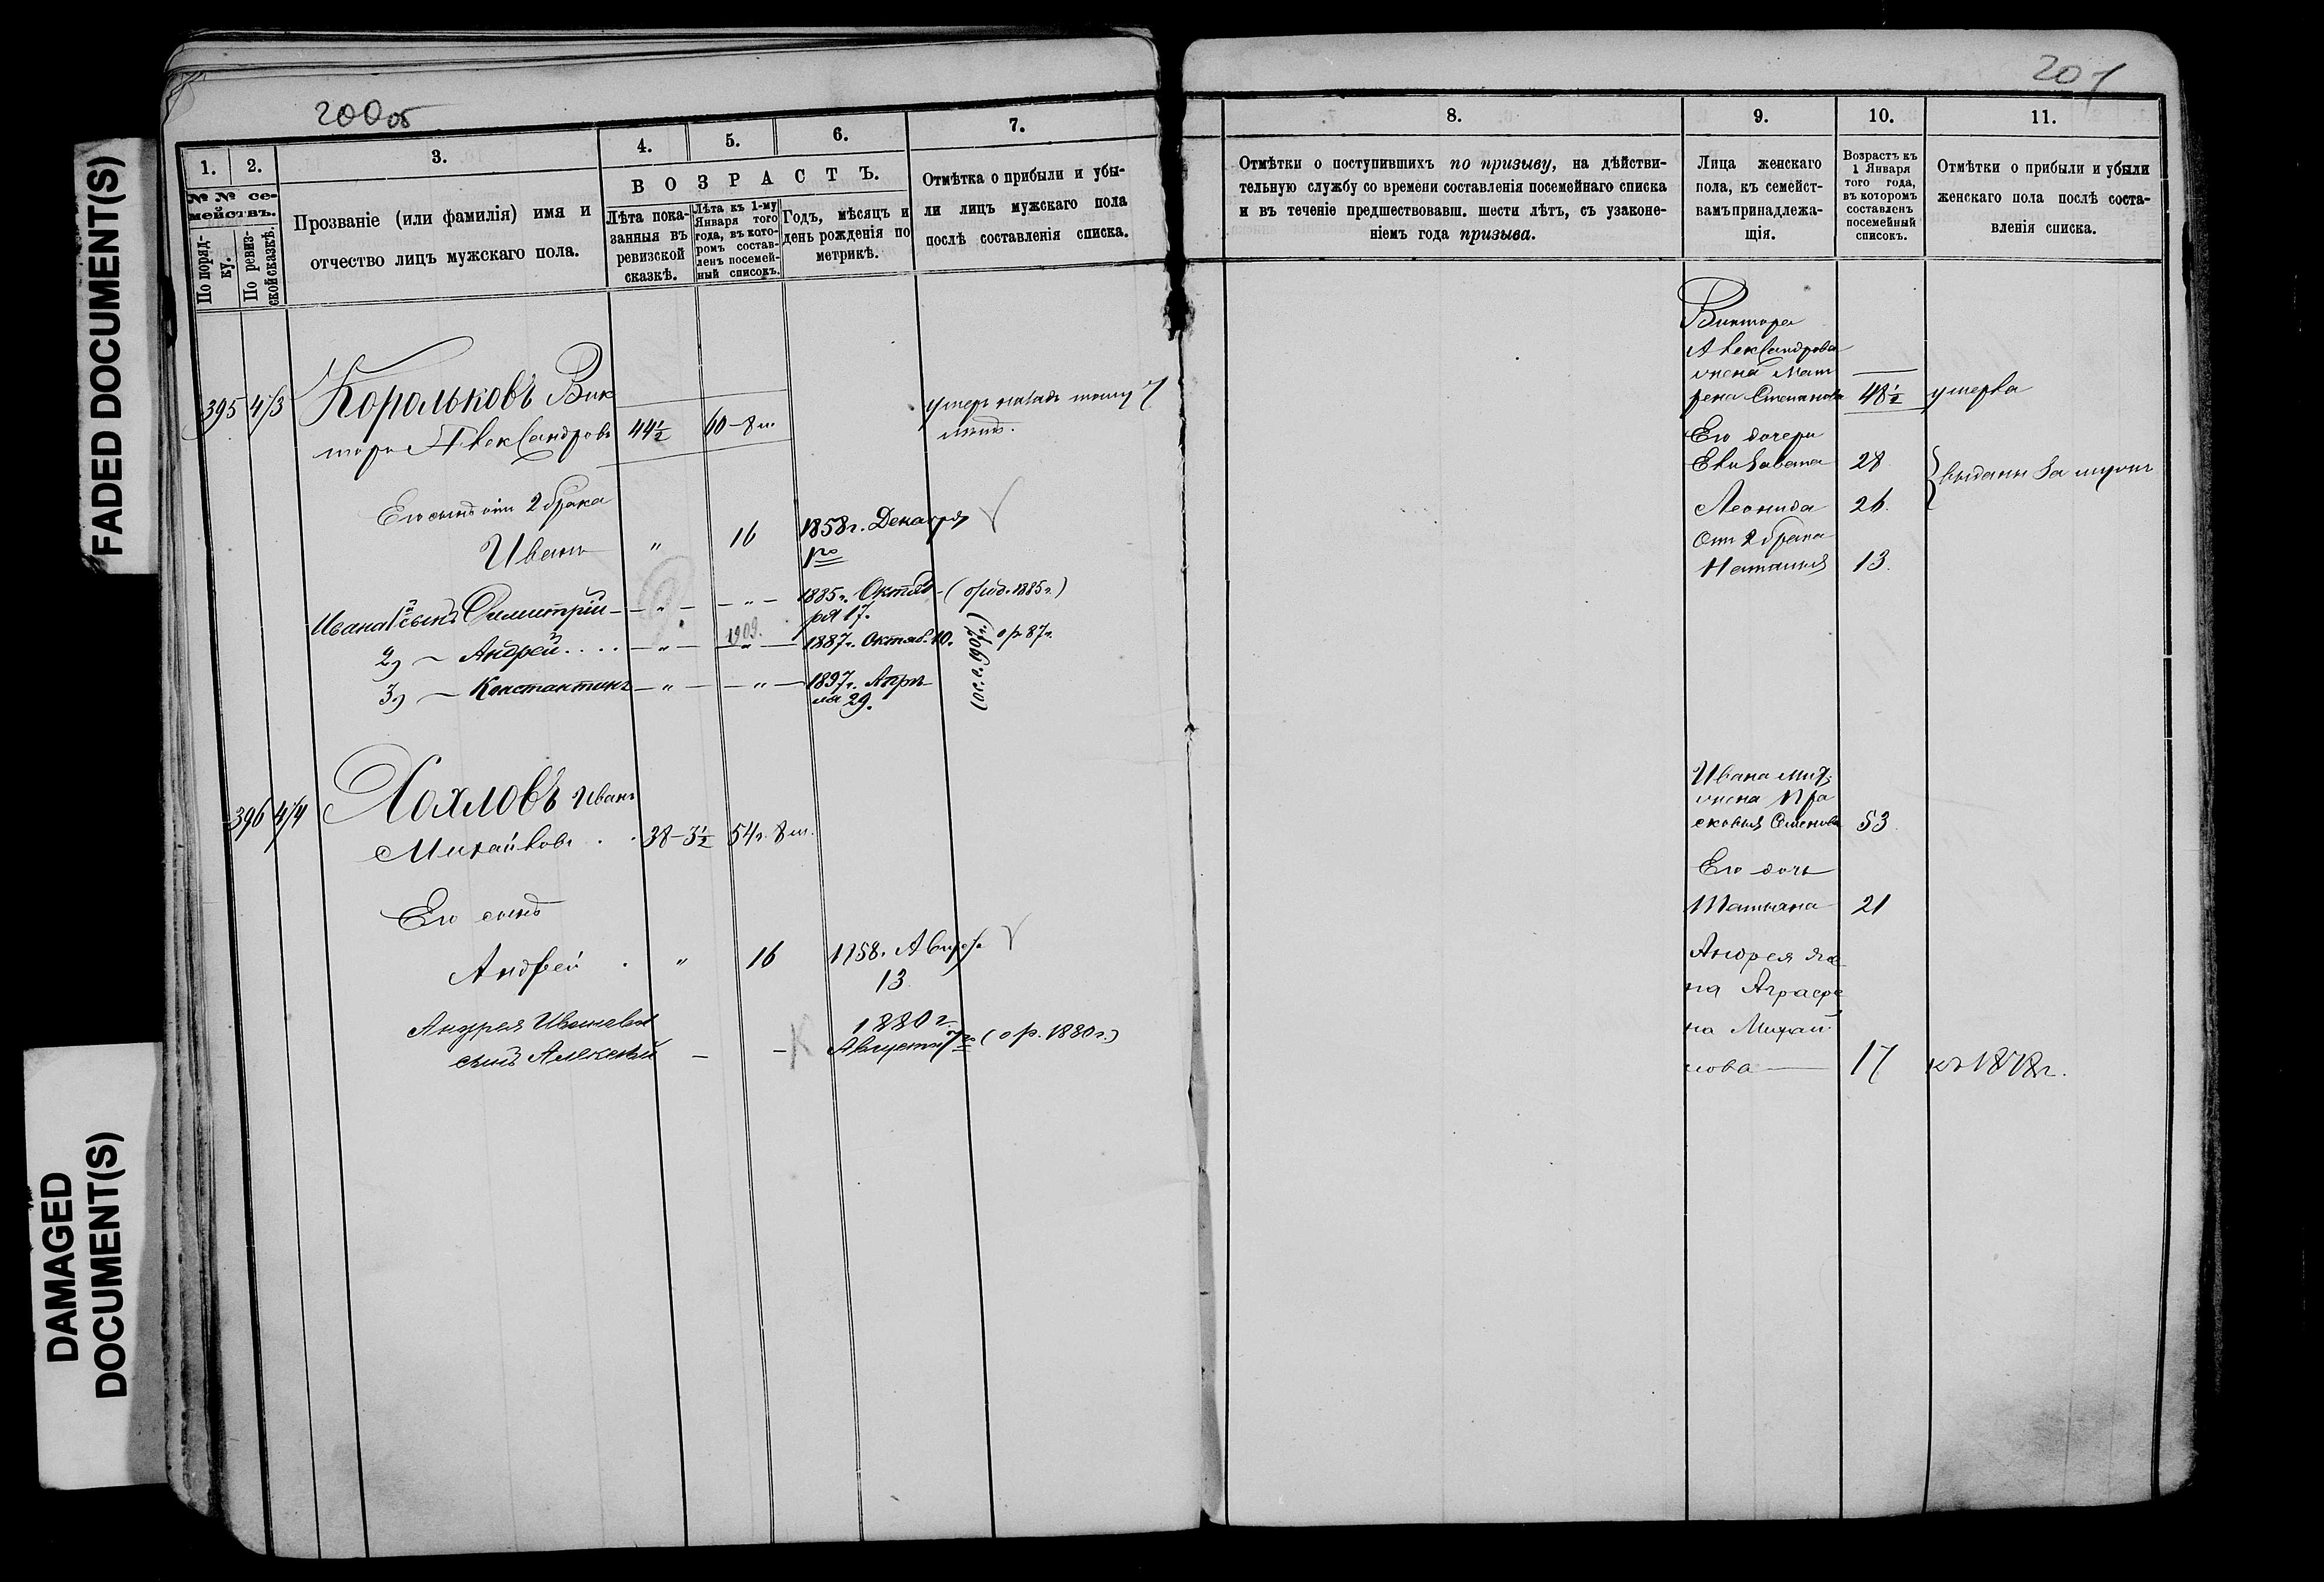 FADED DOCUMENT(S)
DAMAGED
DOCUMENT(S)
200об
1.
2.
3.
4.
5.
6.
7.
№ № се-
мействъ.
По поряд-
ку.
По ревиз-
ской сказкѣ.
Прозваніе (или фамилія) имя и
отчество лицъ мужскаго пола.
ВОЗРАСТЪ.
Лѣта пока-
занныя въ
ревизской
сказкѣ.
Лѣта къ 1-му
Января того
года, въ кото-
ромъ состав-
ленъ посемей-
ный списокъ.
Годъ, мѣсяцъ и
день рожденія по
метрикѣ.
Отмѣтка о прибыли и убы-
ли лицъ мужскаго пола
послѣ составленія списка.
395 473 Корольковъ Вик
торъ Александровъ 44½ 60-8 м.
умеръ назадъ тому 7
лѣтъ.
Его сынъ отъ 2 брака
Иванъ " 16 1858г. Декабря
1го
Ивана 1й сынъ Димитрій - " - - " - 1885г. Октяб-
ря 17. (о/род. 1885г.)
1909.
2) - Андрей .... - " - - " - 1887г. Октяб. 10. о/р 87г.
3) - Константинъ - " - - " - 1897г. Апрѣ
ля 29.
(ос. с. 1907г.)
396 474 Хохловъ Иванъ
Михайловъ . . 38-3½ 54г. 8 м.
Его сынъ
Андрей . " 16 1858.
13
Андрея Иванова
сынъ Алексѣй - - 1880г.
Августа 7го (о/р. 1880г.)
201
8.
9.
10.
11.
Отмѣтки о поступившихъ по призыву, на дѣйстви-
тельную службу со времени составленія посемейнаго списка
и въ теченіе предшествовавш. шести лѣтъ, съ узаконе-
ніемъ года призыва.
Лица женскаго
пола, къ семейст-
вамъ принадлежа-
щія.
Возрастъ къ
1 Января
того года,
въ которомъ
составленъ
посемейный
списокъ.
Отмѣтки о прибыли и убыли
женскаго пола послѣ соста-
вленія списка.
Виктора
Александрова
жена Мат
рена Степанова 48½ умерла
Его дочери
Елизавета 28
Леонида 26.
выданы за мужъ
Отъ 2 брака
Наталия 13.
Ивана Мих.
жена Пра
сковья Семенова 53.
Его дочь
Татьяна 21
Андрея же
на Аграфе
на Михай
лова 17 къ 1878г.